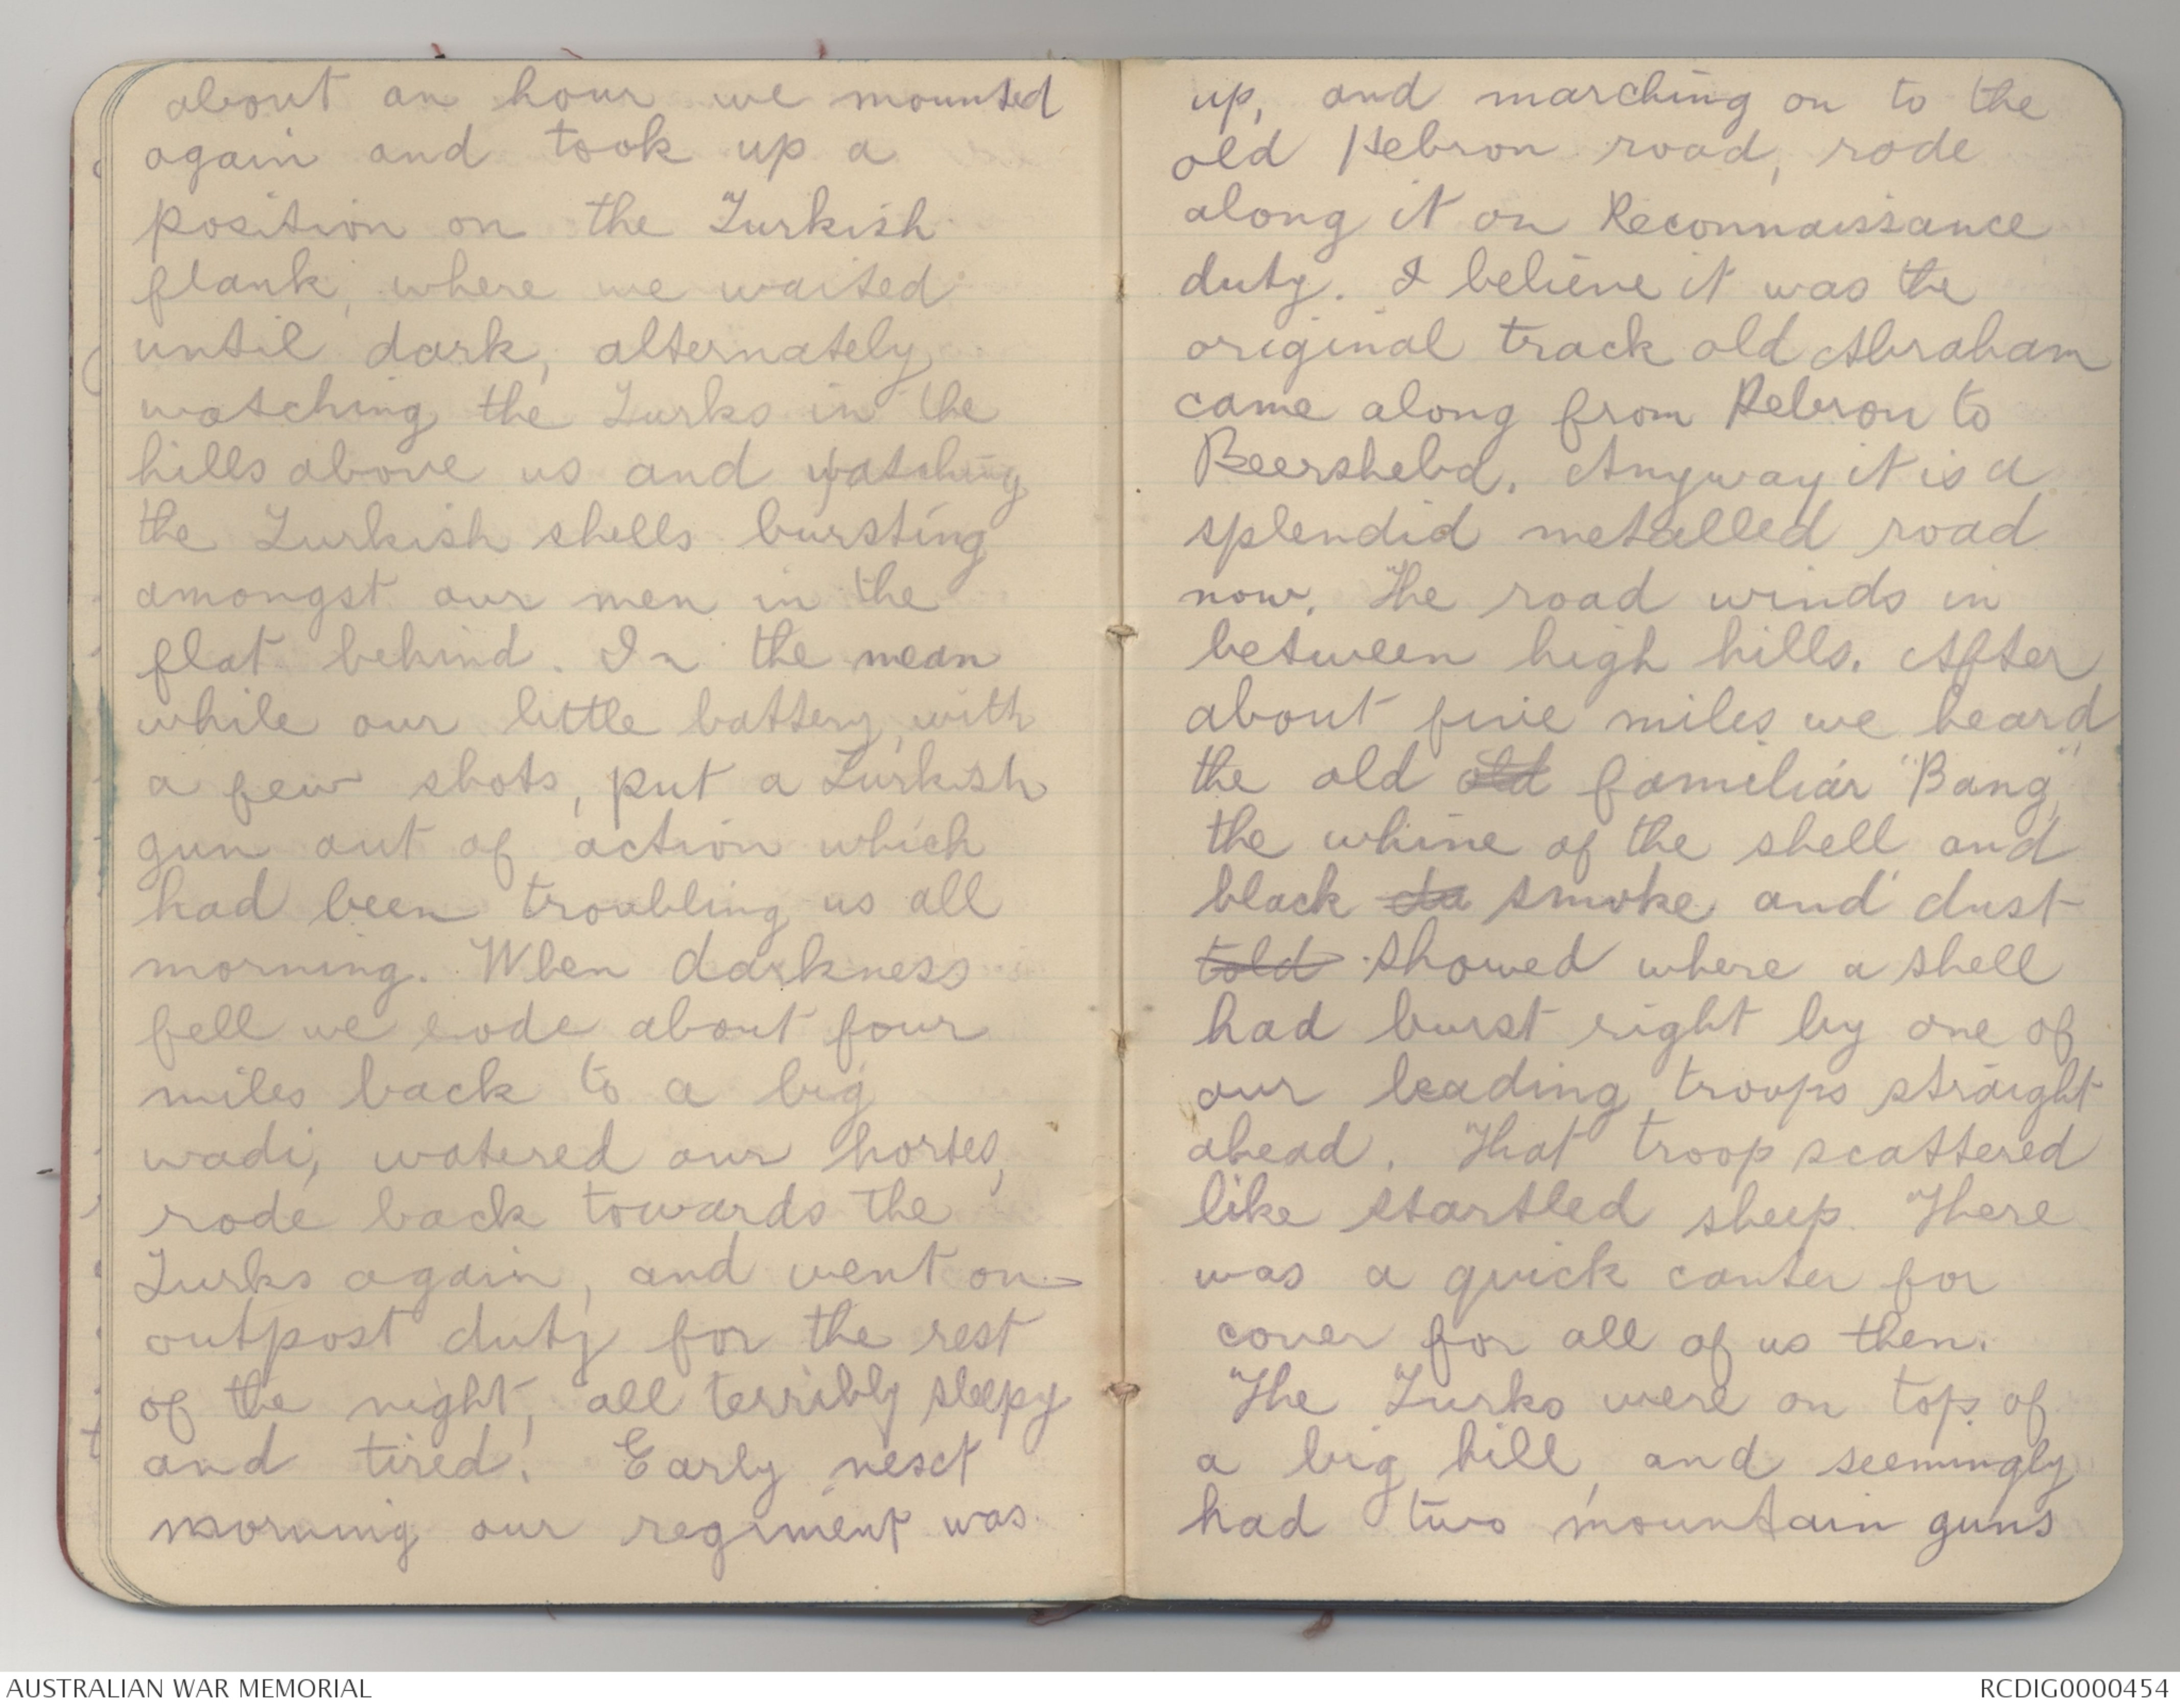 about an hour we mounted
again and took up a
position on the Turkish
flank, where we waited
until dark, alternately
watching the Turks in the
hills above us and watching
the Turkish shells bursting
amongst our men in the
flat behind. In the mean
while our little battery, with
a few shots, put a Turkish
gun out of action which
had been troubling us all
morning. When darkness
fell we rode about four
miles back to a big
wadi, watered our horses,
rode back towards the
Turks again, and went on
outpost duty for the rest
of the night, all terribly sleepy
and tired. Early next
morning our regiment was
up, and marching on to the
old Hebron road, rode
along it on Reconnaissance
duty. I believe it was the
original track old Abraham
came along from Hebron to
Beersheba. Anyway it is a
splendid metalled road
now. The road winds in
between high hills. After
about five miles we heard
the old old familiar "Bang",
the whine of the shell and
black da smoke and dust
told showed where a shell
had burst right by one of
our leading troops straight
ahead. That troop scattered
like startled sheep. There
was a quick canter for
cover for all of us then.
The Turks were on top of
a big hill, and seemingly
had two mountain guns
AUSTRALIAN WAR MEMORIAL
RCDIG0000454